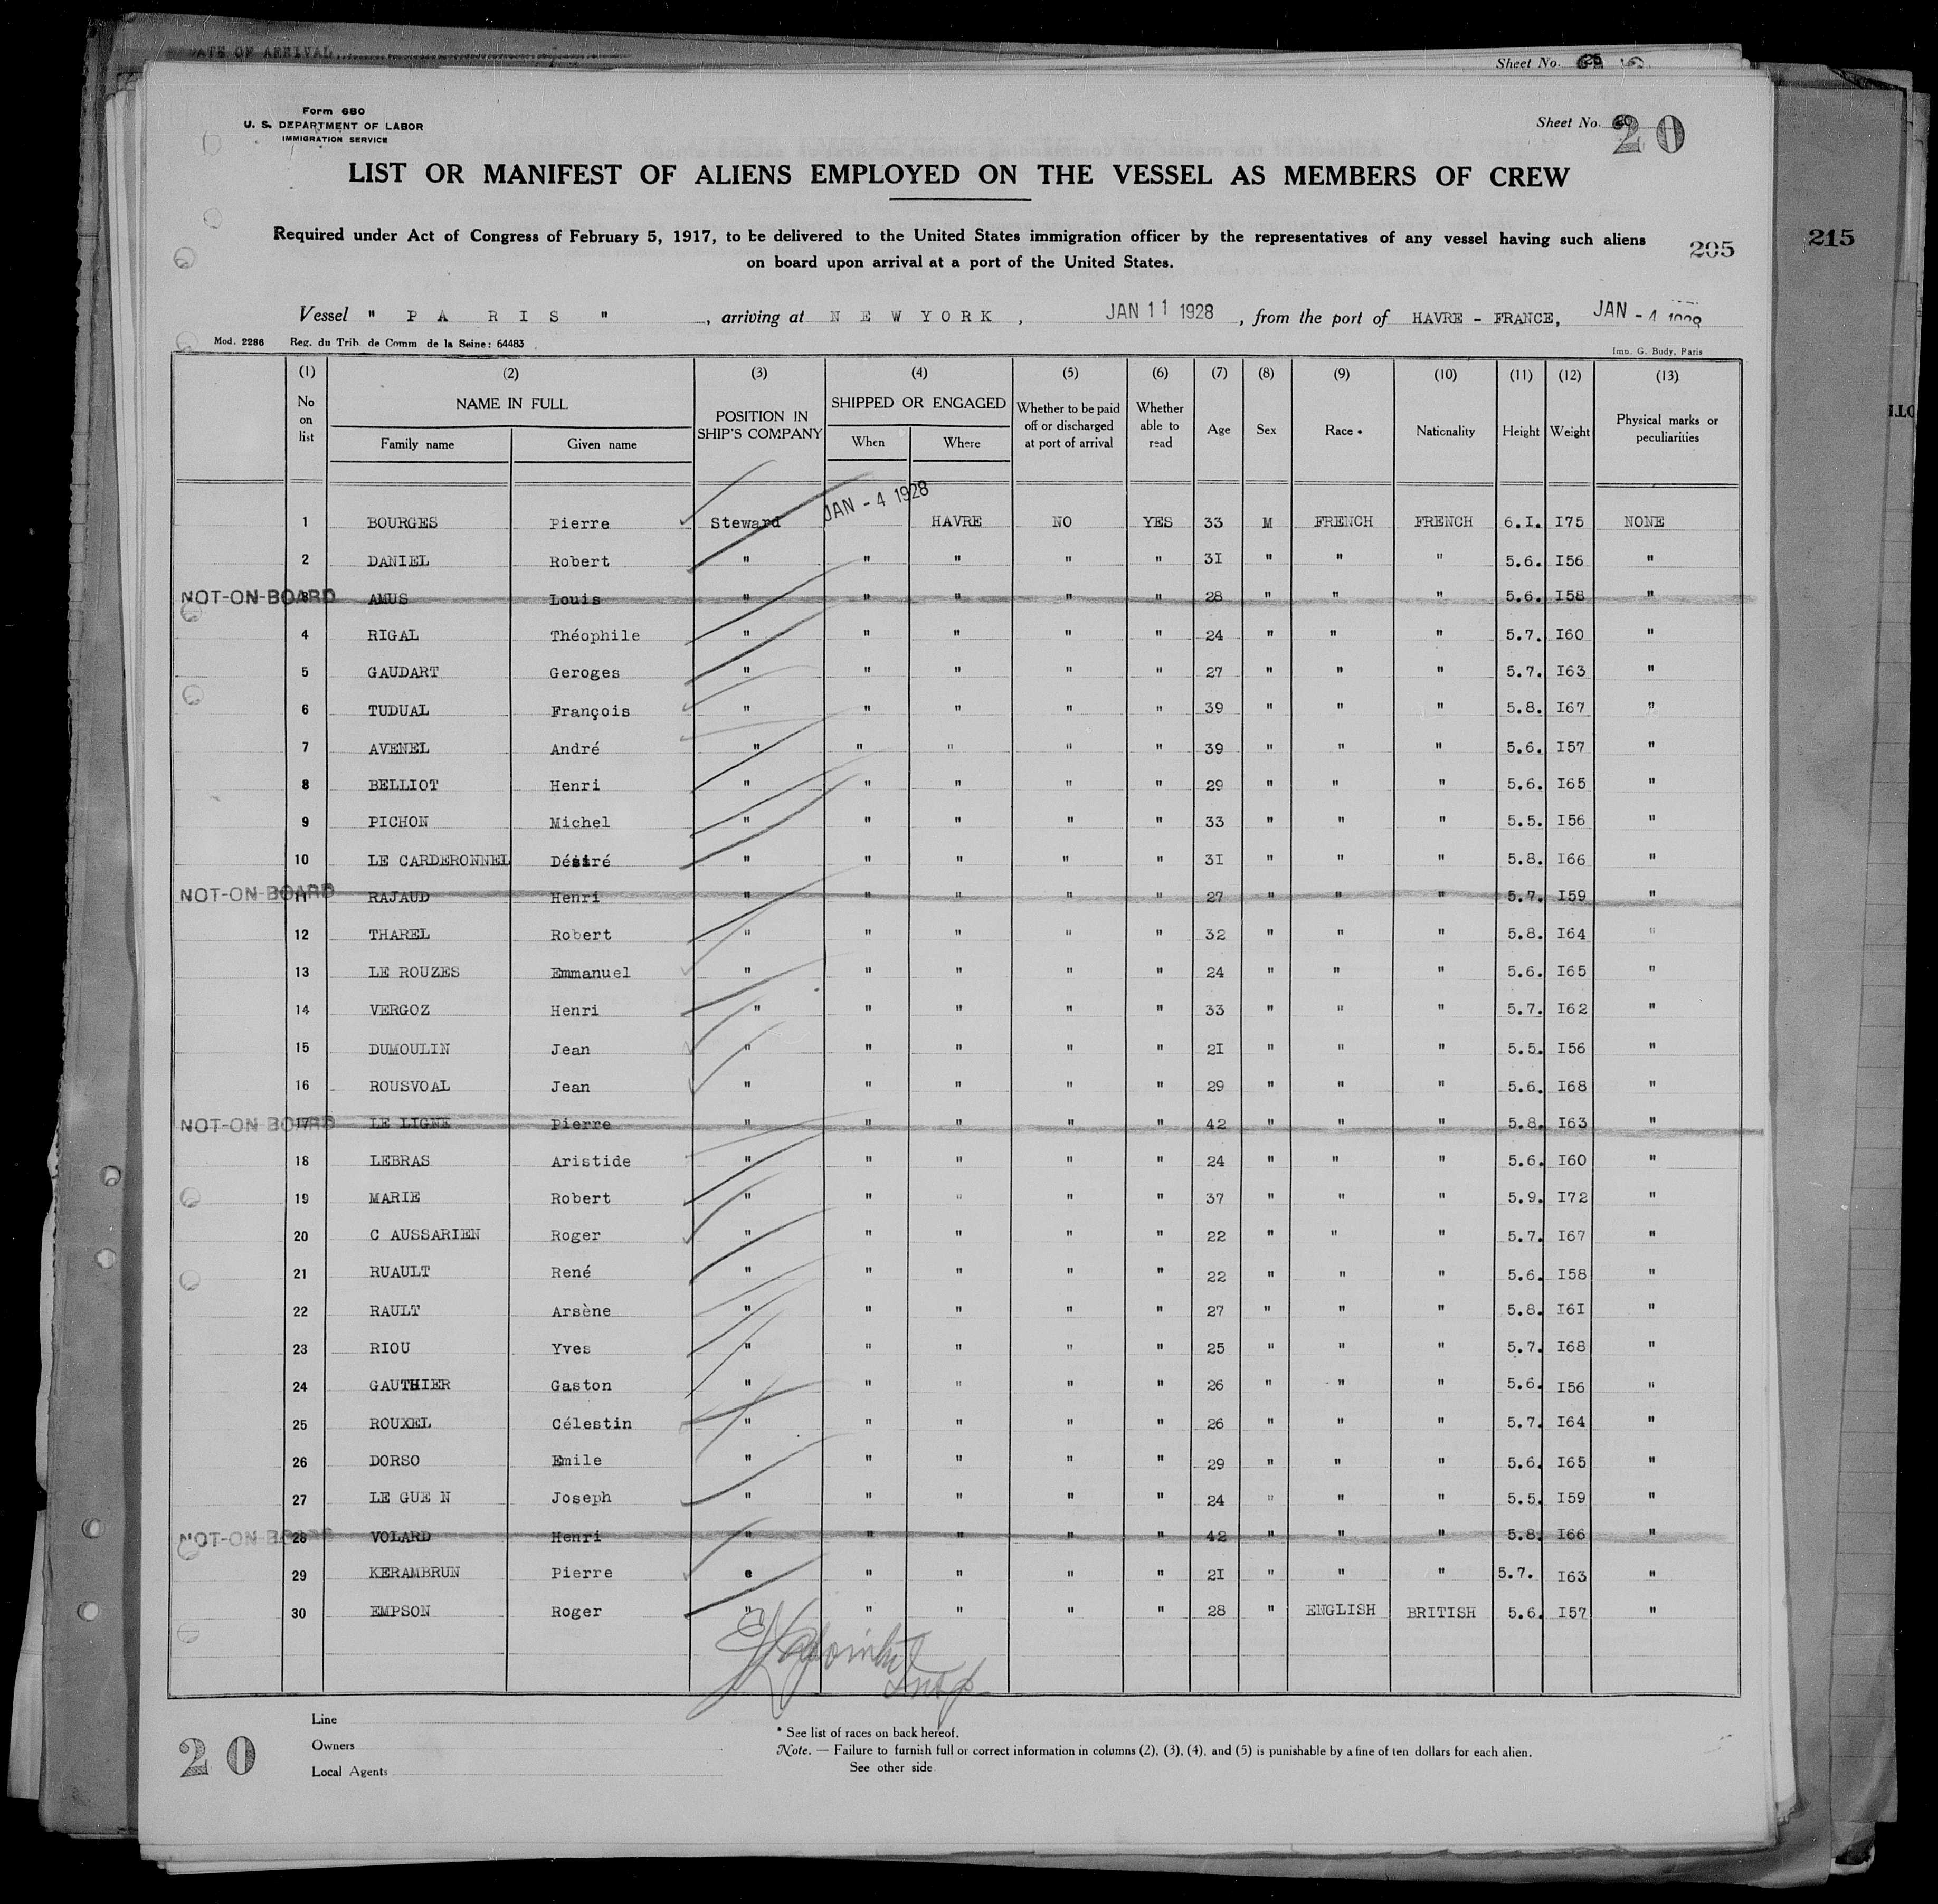 DATE OF ARRIVAL
Sheet No.
Form 680
U. S. DEPARTMENT OF LABOR
IMMIGRATION SERVICE
Sheet No. 20
LIST OR MANIFEST OF ALIENS EMPLOYED ON THE VESSEL AS MEMBERS OF CREW
Required under Act of Congress of February 5, 1917, to be delivered to the United States immigration officer by the representatives of any vessel having such aliens
on board upon arrival at a port of the United States.
205
215
Vessel " P A R I S " , arriving at N E W Y O R K , JAN 11 1928 , from the port of HAVRE - FRANCE, JAN - 4
Mod. 2286 Reg. du Trib. de Comm de la Seine: 64483
Imp. G. Body, Paris
(1) (2) (3) (4) (5) (6) (7) (8) (9) (10) (11) (12) (13)
No on list NAME IN FULL Family name Given name POSITION IN SHIP'S COMPANY SHIPPED OR ENGAGED When Where Whether to be paid off or discharged at port of arrival Whether able to read Age Sex Race * Nationality Height Weight Physical marks or peculiarities
1 BOURGES Pierre Steward JAN - 4 1928 HAVRE NO YES 33 M FRENCH FRENCH 6.I. I75 NONE
2 DANIEL Robert " " " " " 3I " " " 5.6. I56 "
NOT-ON-BOARD 3 AMUS Louis " " " " " 28 " " " 5.6. I58 "
4 RIGAL Théophile " " " " " 24 " " " 5.7. I60 "
5 GAUDART Geroges " " " " " 27 " " " 5.7. I63 "
6 TUDUAL François " " " " " 39 " " " 5.8. I67 "
7 AVENEL André " " " " " 39 " " " 5.6. I57 "
8 BELLIOT Henri " " " " " 29 " " " 5.6. I65 "
9 PICHON Michel " " " " " 33 " " " 5.5. I56 "
10 LE CARDERONNEL Désiré " " " " " 3I " " " 5.8. I66 "
NOT-ON-BOARD 11 RAJAUD Henri " " " " " 27 " " " 5.7. I59 "
12 THAREL Robert " " " " " 32 " " " 5.8. I64 "
13 LE ROUZES Emmanuel " " " " " 24 " " " 5.6. I65 "
14 VERGOZ Henri " " " " " 33 " " " 5.7. I62 "
15 DUMOULIN Jean " " " " " 2I " " " 5.5. I56 "
16 ROUSVOAL Jean " " " " " 29 " " " 5.6. I68 "
NOT-ON-BOARD 17 LE LIGNE Pierre " " " " " 42 " " " 5.8. I63 "
18 LEBRAS Aristide " " " " " 24 " " " 5.6. I60 "
19 MARIE Robert " " " " " 37 " " " 5.9. I72 "
20 C AUSSARIEN Roger " " " " " 22 " " " 5.7. I67 "
21 RUAULT René " " " " " 22 " " " 5.6. I58 "
22 RAULT Arsène " " " " " 27 " " " 5.8. I6I "
23 RIOU Yves " " " " " 25 " " " 5.7. I68 "
24 GAUTHIER Gaston " " " " " 26 " " " 5.6. I56 "
25 ROUXEL Célestin " " " " " 26 " " " 5.7. I64 "
26 DORSO Emile " " " " " 29 " " " 5.6. I65 "
27 LE GUE N Joseph " " " " " 24 " " " 5.5. I59 "
NOT-ON-BOARD 28 VOLARD Henri " " " " " 42 " " " 5.8. I66 "
29 KERAMBRUN Pierre " " " " 2I " " " 5.7. I63 "
30 EMPSON Roger " " " " " 28 " ENGLISH BRITISH 5.6. I57 "
Insp
20
Line
Owners
Local Agents
* See list of races on back hereof.
Note. — Failure to furnish full or correct information in columns (2), (3), (4), and (5) is punishable by a fine of ten dollars for each alien.
See other side